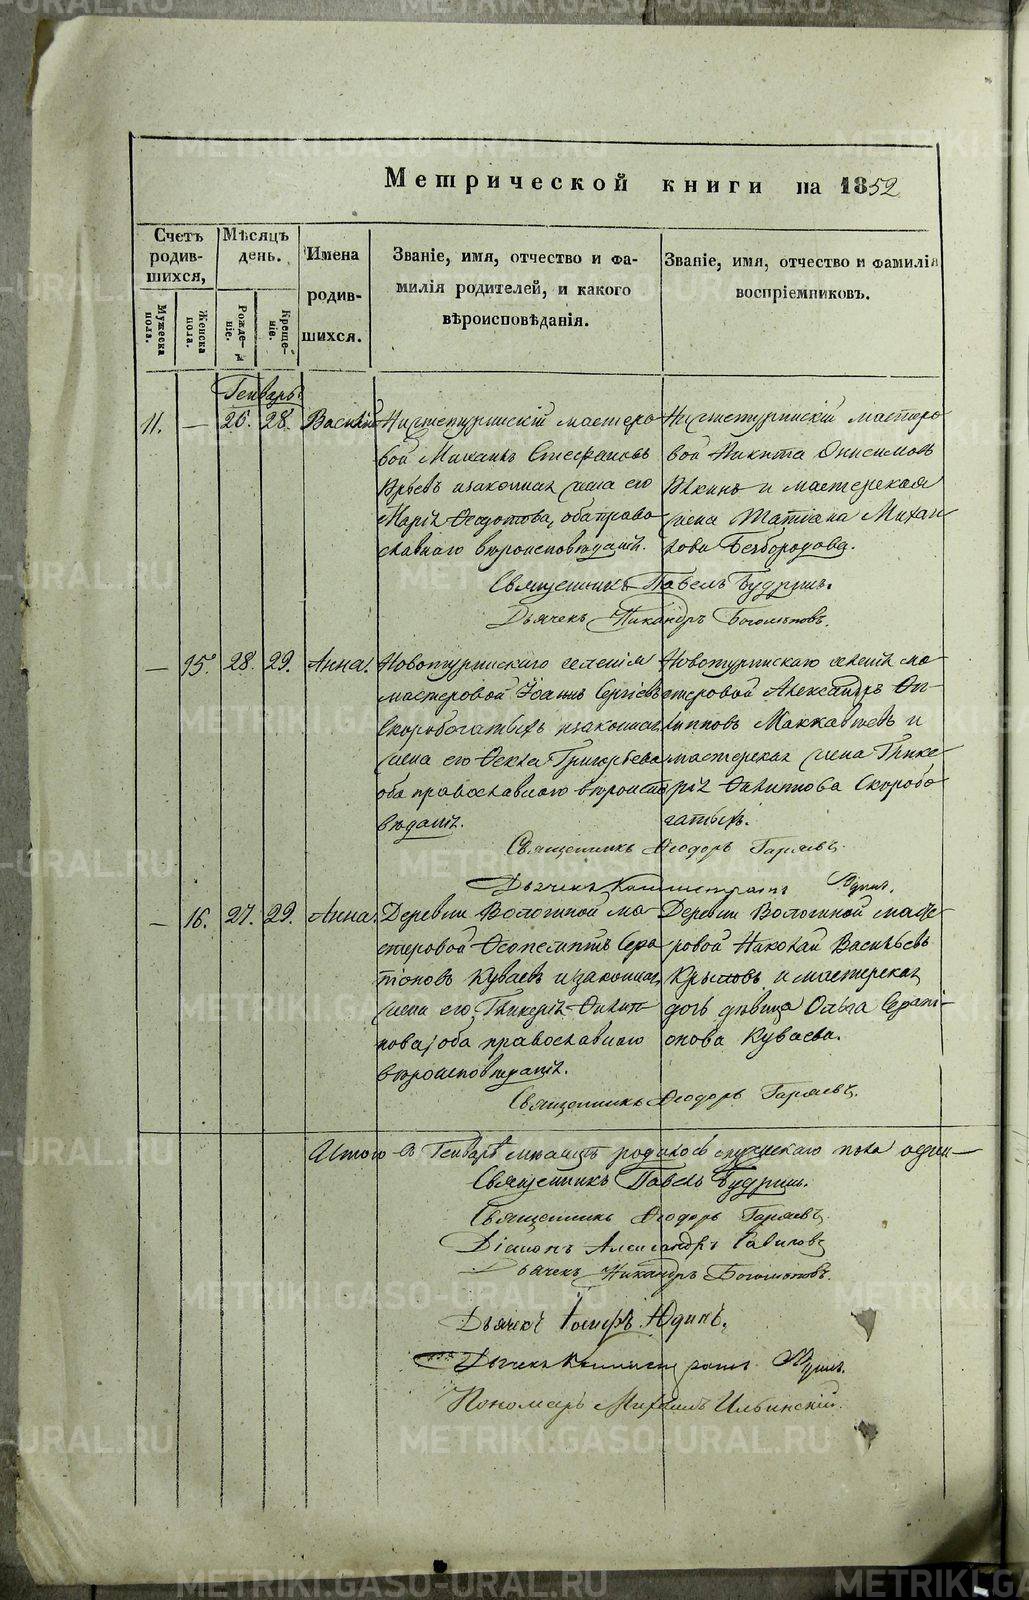 Метрической книги на 1852
Счетъ родив-шихся,
Мѣсяцъ день.
Имена родив-шихся.
Званіе, имя, отчество и фа-
милія родителей, и какого
вѣроисповѣданія.
Званіе, имя, отчество и фамилія
воспріемниковъ.
Мужеска пола.
Женска пола.
Рожде-ніе.
Креще-ніе.
Генварь
11. — 26. 28. Василій
мастеро-
вой Михаилъ Стефановъ
изаконная жена его
Марія Ѳедотова, оба право-
славнаго вѣроисповѣданія.
мастеро-
вой Никита Онисимовъ
и мастерская
жена Татіана Михаи-
лова Безбородова.
Священникъ Павелъ Будринъ.
Дьячекъ Никандръ Богомоловъ.
— 15. 28. 29. Анна.
Новотуринскаго селенія
мастеровой Іоаннъ Сергіевъ
Скоробогатыхъ изаконная
жена его Ѳекла Григорьева
оба православнаго вѣроиспо-
вѣданія.
Новотуринскаго селенія ма-
стеровой Александръ Фи-
липповъ и
мастерская жена Глике-
рія Филиппова Скоробо-
гатыхъ.
Священникъ Ѳеодоръ Гаряевъ.
Дьячекъ
— 16. 27. 29. Анна.
Деревни Вологиной ма-
стеровой Ѳеопемптъ Сера-
піоновъ Куваевъ изаконная
жена его, Гликерія Филип-
пова, оба православнаго
вѣроисповѣданія.
Деревни Вологиной масте-
ровой Николай Васильевъ
Крыловъ и мастерская
дочь дѣвица Ольга Серапі-
онова Куваева.
Священникъ Ѳеодоръ Гаряевъ.
Итого въ Генварѣ мѣсяцѣ родилось мужескаго пола один—
Священникъ Павелъ Будринъ.
Священникъ Ѳеодоръ Гаряевъ
Діаконъ Александръ
Дьячекъ Никандръ Богомоловъ.
Дьячекъ Іосифъ Юдинъ.
Дьячекъ
Пономарь Михаилъ Ильинскій.
METRIKI.GASO-URAL.RU